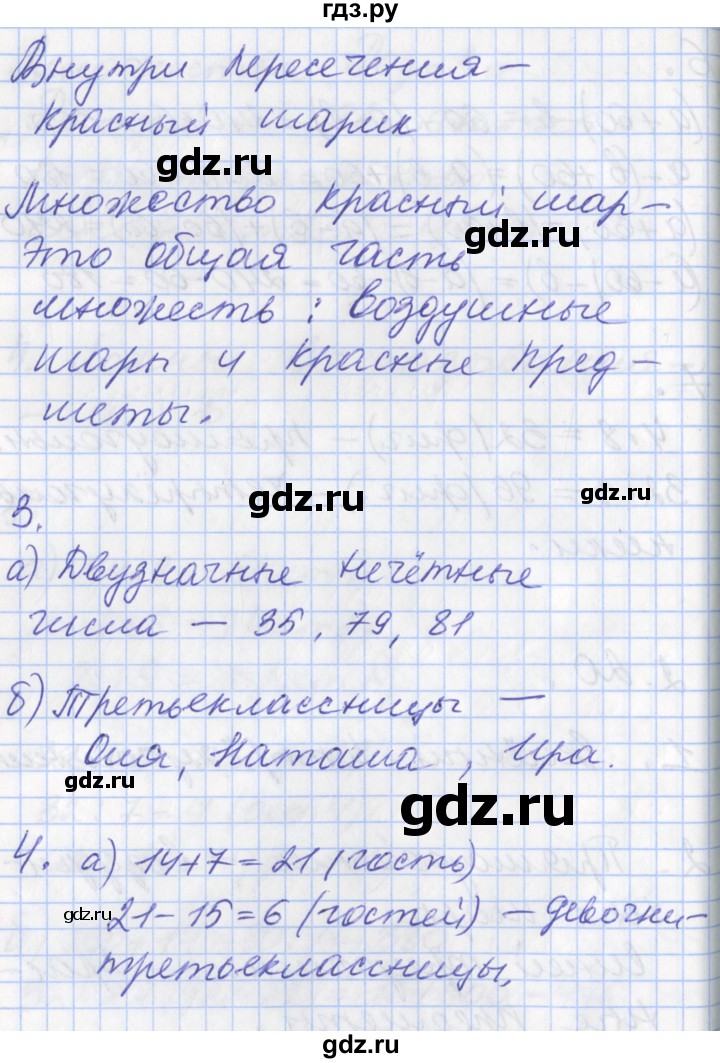 гдз.ру
Внутри пересечения –
красный шарик
gdz.ru
Множество красный шар –
gdz.ru
это общая часть
множеств : воздушные
шары и красные пред –
меты.
gdz.ru
gdz.ru
3.
а) Двузначные нечётные
числа – 35, 79, 81
б) Третьеклассницы –
Оля, Наташа, Ира.
gdz.ru
gdz.ru
4. а) 14+7=21 (гость)
gdz.ru
21-15=6 (гостей) – девочки-
третьеклассницы,
gdz.ru